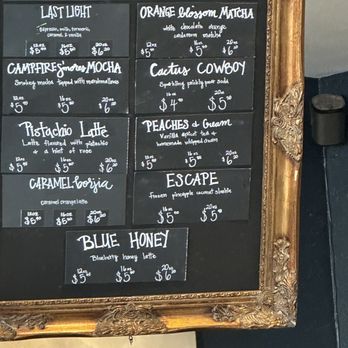 LAST LIGHT
Espresso, milk, turmeric,
caramel & vanilla
12oz 16oz 20oz
$5 $5 $6
ORANGE blossom MATCHA
white chocolate orange
cardamom matcha
12oz 16oz 20oz
$5 $5 $6
CAMPFIRE S'mores MOCHA
Smokey mocha topped with marshmallows
$5 $5 $6
Cactus COWBOY
Sparkling prickly pear soda
16oz 20oz
$4 $5
Pistachio Latte
Latte flavored with pistachio
& a hint of rose
12oz 16oz 20oz
$5 $5 $6
PEACHES & Cream
Vanilla apricot tea &
homemade whipped cream
12oz 16oz 20oz
$5 $5 $6
CARAMEL borjia
Caramel orange latte
12oz 16oz 20oz
$5 $5 $6
ESCAPE
frozen pineapple coconut
16oz 20oz
$5 $5
BLUE HONEY
Blueberry honey latte
12oz 16oz 20oz
$5 $5 $6